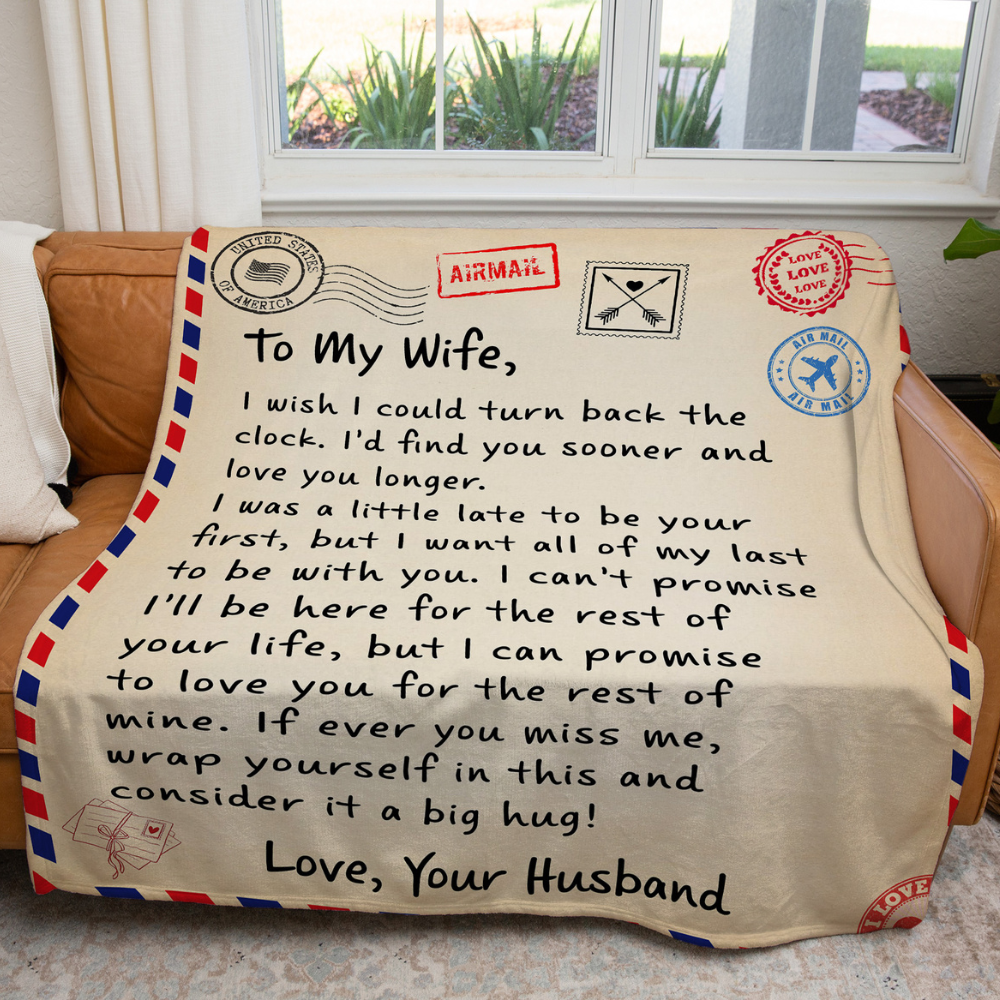 UNITED STATES
OF AMERICA
AIRMAIL
LOVE
LOVE
LOVE
AIR MAIL
AIR MAIL
To My Wife,
I wish I could turn back the
clock. I'd find you sooner and
love you longer.
I was a little late to be your
first, but I want all of my last
to be with you. I can't promise
I'll be here for the rest of
your life, but I can promise
to love you for the rest of
mine. If ever you miss me,
wrap yourself in this and
consider it a big hug!
Love, Your Husband
I LOVE